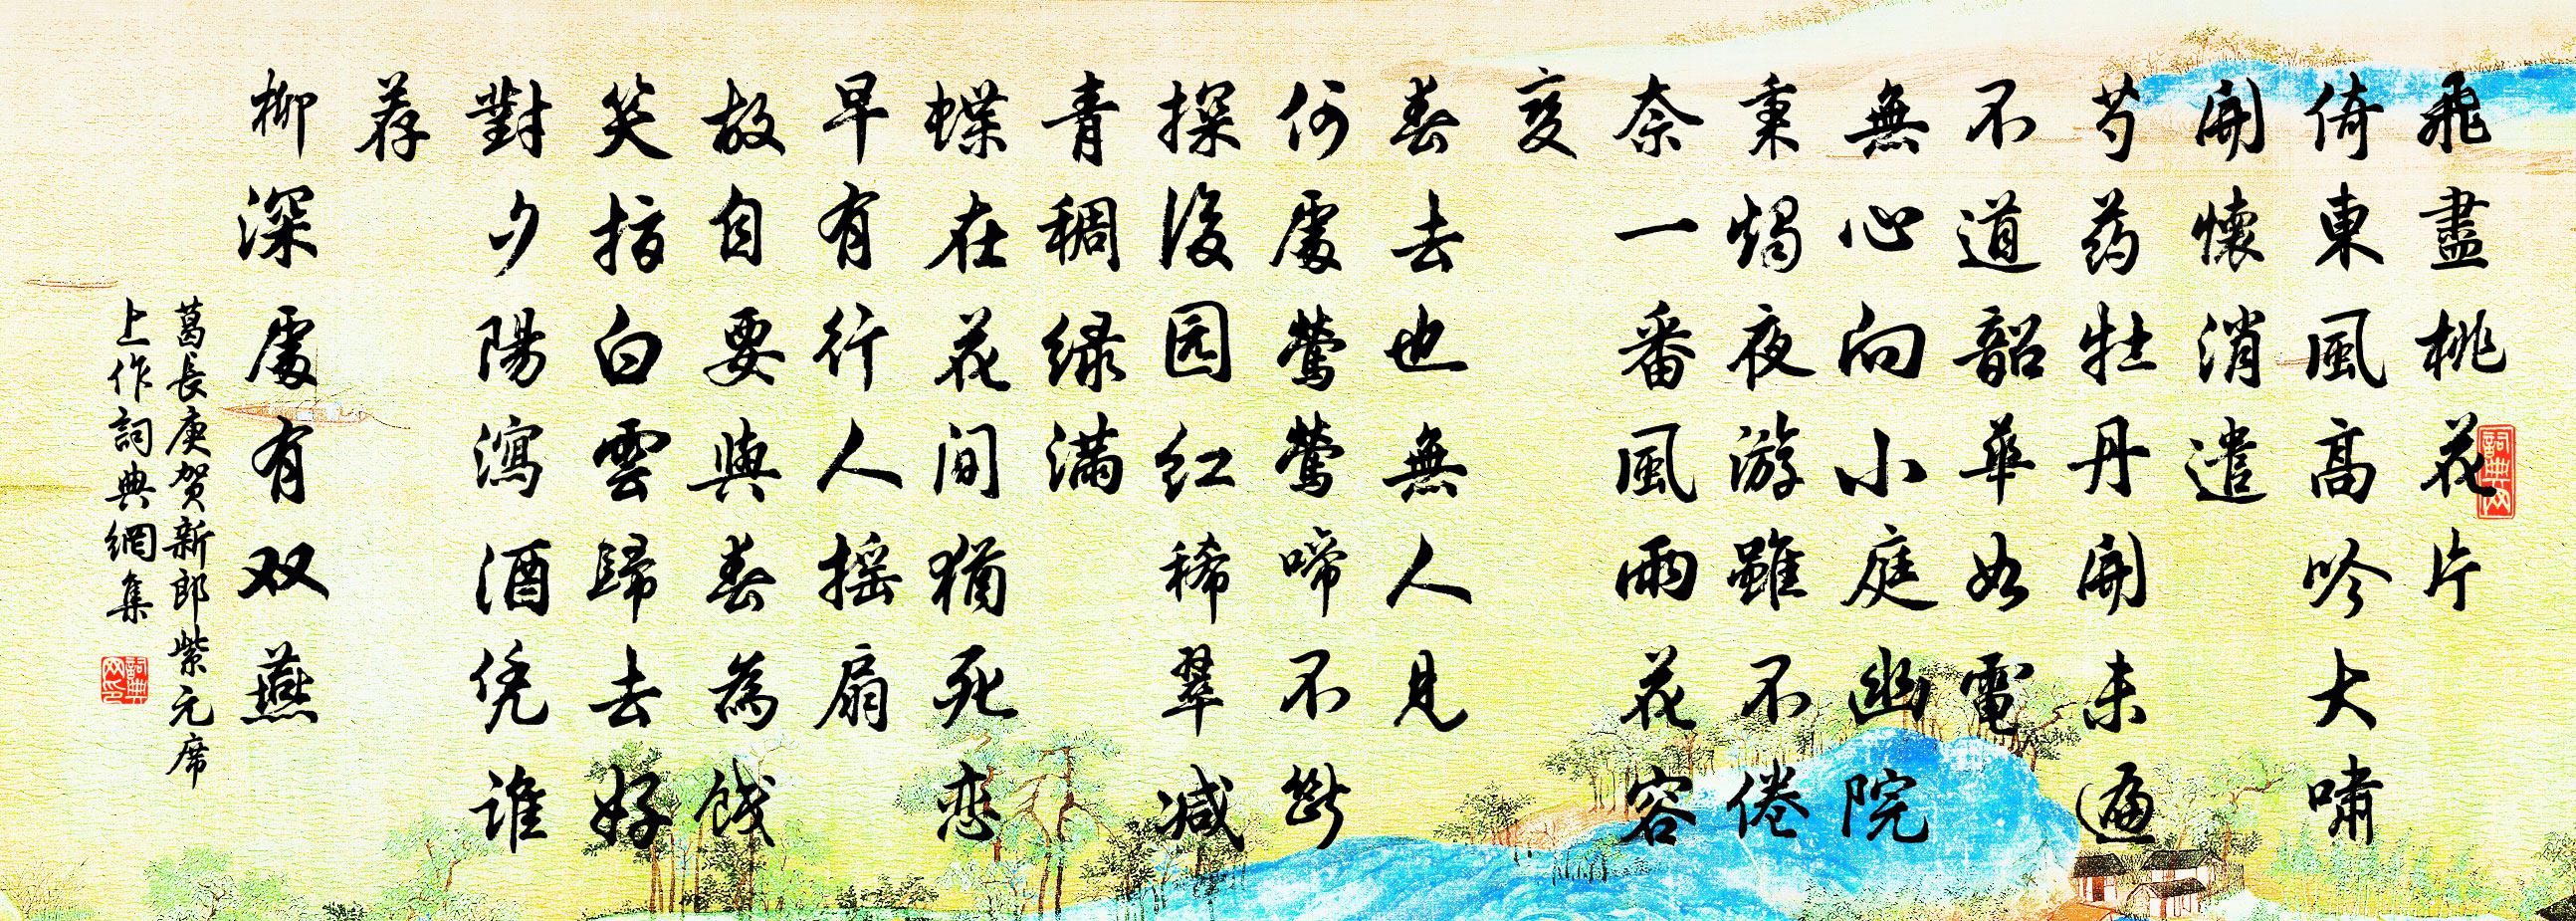 飛盡桃花片
倚東風高吟大嘯
開懷消遣
芍药牡丹開未遍
不道韶華如電
無心向小庭幽院
秉燭夜游雖不倦
奈一番風雨花容
变
春去也無人見
何處鶯鶯啼不斷
探後园红稀翠减
青稠绿满
蝶在花间猶死恋
早有行人摇扇
故自要與春為餞
笑指白雲歸去好
對夕陽瀉酒凭谁
荐
柳深處有双燕
葛長庚贺新郎紫元席
上作詞典網集
詞典网
詞典网印